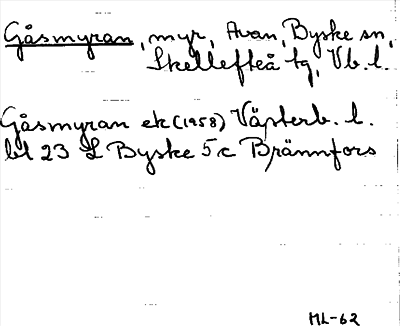 Gåsmyran, myr, Avan, Byske sn,
Skellefteå tg, Vb. l.
Gåsmyran ek (1958) Västerb. l.
bl 23 L Byske 5c Brännfors
ML-62